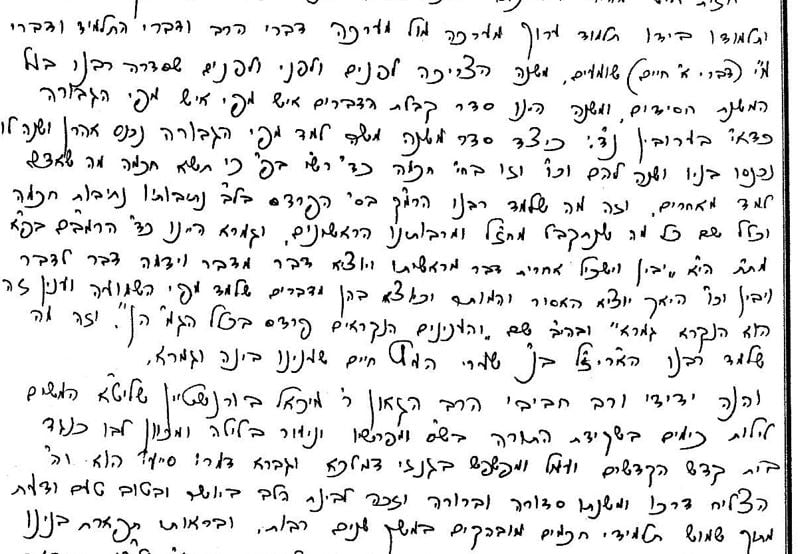 ותלמודו בידו תלמוד ערוך מערכה מול מערכה דברי הרב ודברי התלמיד ודברי
מי (דברי א' חיים) שומעים, משנה הצריכה לפנים ולפני ולפנים שסדרה רבנו
המשנת חסידים, ומשנה היינו סדר קבלת הדברים איש מפי איש מפי הגבורה
כדאי' בערובין נד: כיצד סדר משנה משה למד מפי הגבורה נכנס אהרן ושנה לו
נכנסו בניו ושנה להם וכו' וזו בחי' חכמה כד' רש"י בפ' כי תשא חכמה מה שאדם
למד מאחרים, וזה מה שלמד רבנו הרמ"ק בס' הפרדס בל"ב נתיבותיו נתיבות חכמה
וכלל שם כל מה שנתקבל מחז"ל ומרבותנו הראשונים, וגמרא היינו כד' הרמב"ם בפ"א
מת"ת הי"א "יבין וישכיל אחרית דבר מראשיתו ויוציא דבר מדבר וידמה דבר לדבר
ויבין וכו' היאך יוציא האסור והמותר וכיוצא בהן מדברים שלמד מפי השמועה וענין זה
הוא הנקרא גמרא" ובהי"ב שם "והענינים הנקראים פרדס בכלל הגמ' הן". וזה מה
שלמד רבנו האריז"ל בנ' שערי חיים שמנינו בינה וגמרא.
והנה ידידי ורב חביבי הרב הגאון ר' מיכאל בורנשטיין שליט"א המשים
לילות כימים בשקידת התורה בש"ס ומפרשיו וניעור בלילה ומכוון לבו כנגד
בית קדש הקדשים ועמל ומפשפש בגנזי דמלכא וגברא דמרי' סייעי' הוא וה'
הצליח דרכו ומשנתו סדורה וברורה וזכה לבינת הלב ביושר ובטוב טעם ודעת
מתוך שמוש תלמידי חכמים מובהקים במשך שנים רבות, ובראותי תפארת בנינו